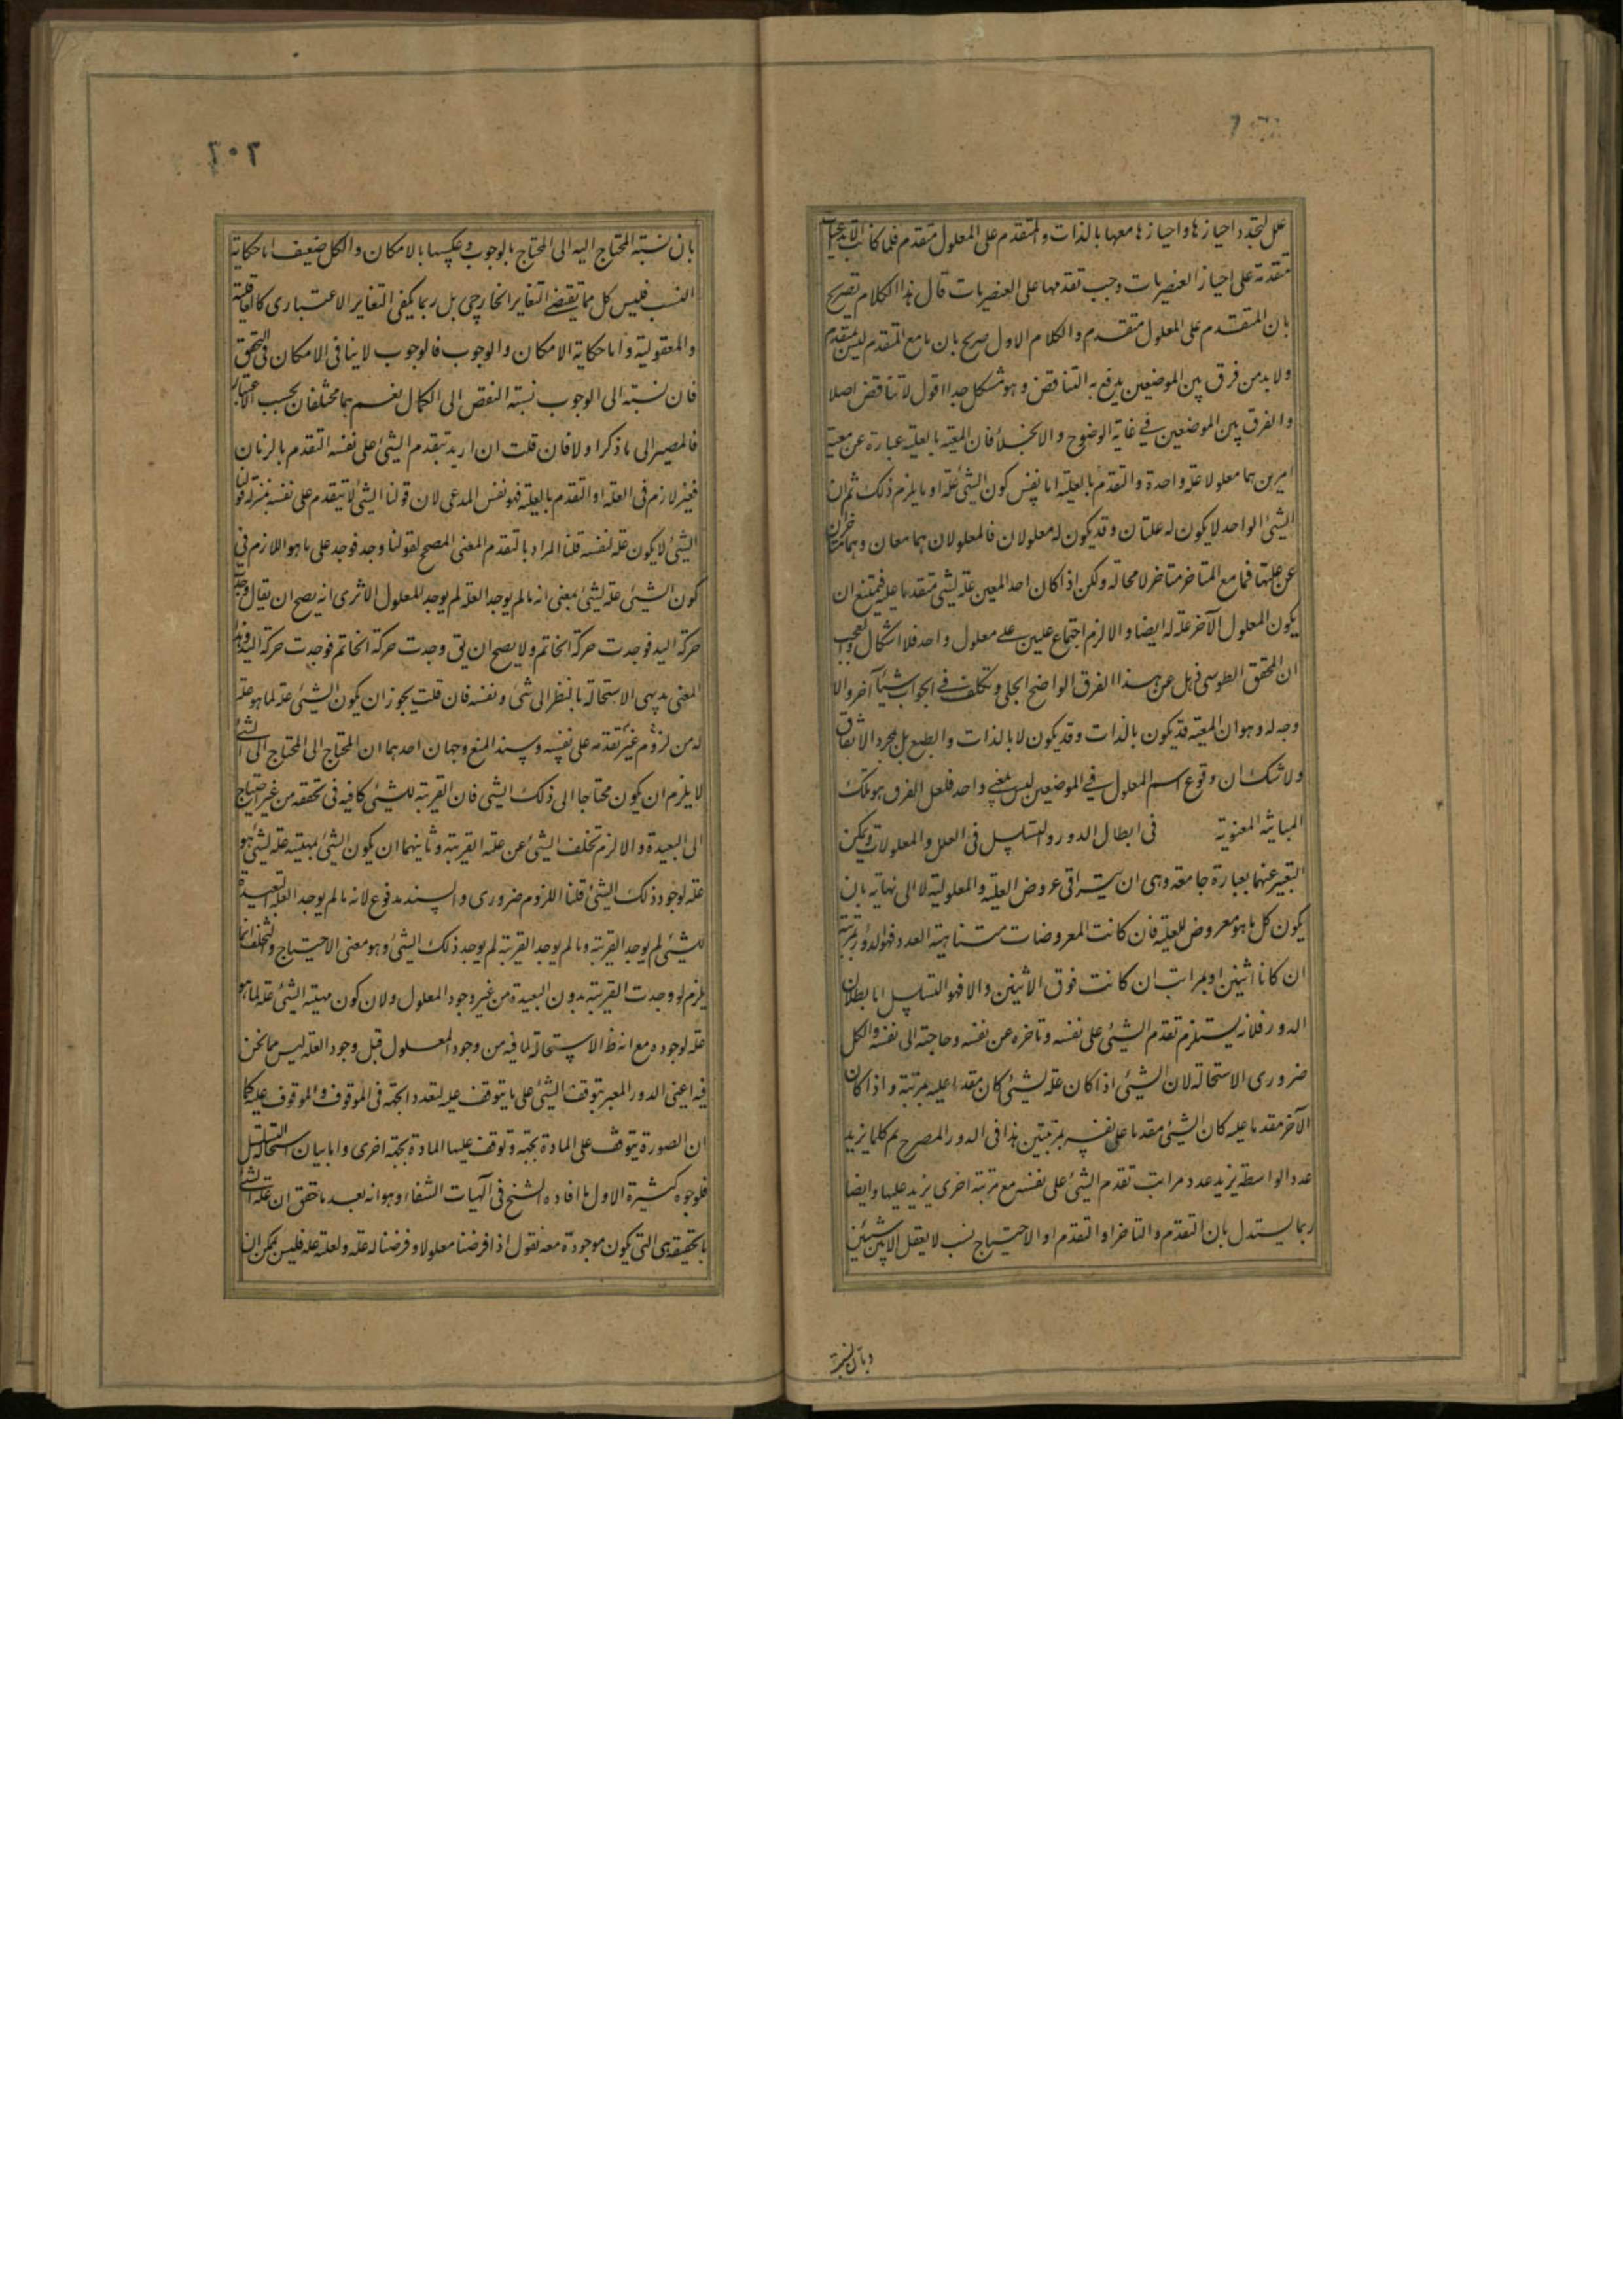 علل لتجدد احيازها و احيازها معها بالذات و المتقدم على المعلول متقدم فلما كانت الابداعيات
متقدمة على احياز العنصريات وجب تقدمها على العنصريات قال هذا الكلام تصريح
بان المتقدم على المعلول متقدم و الكلام الاول صريح بان ما مع المتقدم ليس بمتقدم
ولا بد من فرق بين الموضعين يدفع به التناقض و هو مشكل جدا اقول لا تناقض اصلا
و الفرق بين الموضعين في غاية الوضوح و الانجلاء فان المعية بالعلية عبارة عن معية
امرين هما معلولا علة واحدة و التقدم بالعلية اما نفس كون الشيء علة او ما يلزم ذلك ثم ان
الشيء الواحد لا يكون له علتان و قد يكون له معلولان فالمعلولان هما معان و هما متاخران
عن علتهما فما مع المتاخر متاخر لا محالة ولكن اذا كان احد المعين علة لشيء متقدما عليه فيمتنع ان
يكون المعلول الآخر علة له ايضا و الا لزم اجتماع علتين على معلول واحد فلا اشكال و العجب
ان المحقق الطوسي ذهل عن هذا الفرق الواضح الجلي و تكلف في الجواب شيئا آخر و الا
وجه له و هو ان المعية قد يكون بالذات و قد يكون لا بالذات و الطبع بل بمجرد الاتفاق
ولا شك ان وقوع اسم المعلول في الموضعين ليس بمعنى واحد فلعل الفرق هو تلك
المباينة المعنوية في ابطال الدور و التسلسل في العلل و المعلولات و يمكن
التعبير عنهما بعبارة جامعة و هي ان يتراقى عروض العلية و المعلولية لا الى نهاية بان
يكون كل ما هو معروض للعلية فان كانت المعروضات متناهية العدد فهو الدور بمرتبة
ان كانا اثنين او بمراتب ان كانت فوق الاثنين و الا فهو التسلسل اما بطلان
الدور فلانه يستلزم تقدم الشيء على نفسه و تاخره عن نفسه و حاجته الى نفسه و الكل
ضروري الاستحالة لان الشيء اذا كان علة لشيء كان مقدما عليه بمرتبة و اذا كان
الآخر مقدما عليه كان الشيء مقدما على نفسه بمرتبتين هذا في الدور المصرح ثم كلما يزيد
عدد الواسطة يزيد عدد مراتب تقدم الشيء على نفسه مع مرتبة اخرى يزيد عليها و ايضا
ربما يستدل بان التقدم و التاخر او التقدم او الاحتياج نسب لا يعقل الا بين شيئين
و بان نسبة
٢٠٢
بان نسبة المحتاج اليه الى المحتاج بالوجوب و عكسها بالامكان و الكل ضعيف اما حكاية
النسب فليس كل مما يقتضي التغاير الخارجي بل ربما يكفي التغاير الاعتباري كالعاقلية
و المعقولية و اما حكاية الامكان و الوجوب فالوجوب لا ينافي الامكان في التحقق
فان نسبته الى الوجوب نسبة النقص الى الكمال نعم هما مختلفان بحسب الاعتبار
فالمصير الى ما ذكر اولا فان قلت ان اريد بتقدم الشيء على نفسه التقدم بالزمان
فغير لازم في العلة او التقدم بالعلية فهو نفس المدعى لان قولنا الشيء لا يتقدم على نفسه بمنزلة قولنا
الشيء لا يكون علة لنفسه قلنا المراد بالتقدم المعنى المصحح لقولنا وجد فوجد على ما هو اللازم في
كون الشيء علة لشيء بمعنى انه ما لم يوجد العلة لم يوجد المعلول الا ترى انه يصح ان يقال وجدت
حركة اليد فوجدت حركة الخاتم ولا يصح ان يق وجدت حركة الخاتم فوجدت حركة اليد و هذا
المعنى بديهي الاستحالة بالنظر الى شيء و نفسه فان قلت يجوز ان يكون الشيء علة لما هو علة
له من لزوم غير تقدمه على نفسه و سند المنع وجهان احدهما ان المحتاج الى المحتاج الى الشيء
لا يلزم ان يكون محتاجا الى ذلك الشيء فان القريبة للشيء كافية في تحققه من غير احتياج
الى البعيدة و الا لزم تخلف الشيء عن علته القريبة و ثانيهما ان يكون الشيء بمهيته علة لشيء هو
علة لوجود ذلك الشيء قلنا اللزوم ضروري و السند مدفوع لانه ما لم يوجد العلة البعيدة
للشيء لم يوجد القريبة و ما لم يوجد القريبة لم يوجد ذلك الشيء و هو معنى الاحتياج و التخلف انما
يلزم لو وجدت القريبة بدون البعيدة من غير وجود المعلول و لان كون مهية الشيء علة لما هو
علة لوجوده مع انه ظ الاستحالة لما فيه من وجود المعلول قبل وجود العلة ليس مما نحن
فيه اعني الدور المعبر بتوقف الشيء على ما يتوقف عليه لتعدد الجهة في الموقوف و الموقوف عليه كما
ان الصورة يتوقف على المادة بجهة و توقف عليها المادة بجهة اخرى و اما بيان استحالة التسلسل
فلوجوه كثيرة الاول ما افاده الشيخ في آلهيات الشفاء و هو انه بعد ما تحقق ان علة الشيء
بالحقيقة هي التي يكون موجودة معه نقول اذا فرضنا معلولا و فرضنا له علة و لعلته علة فليس يمكن ان